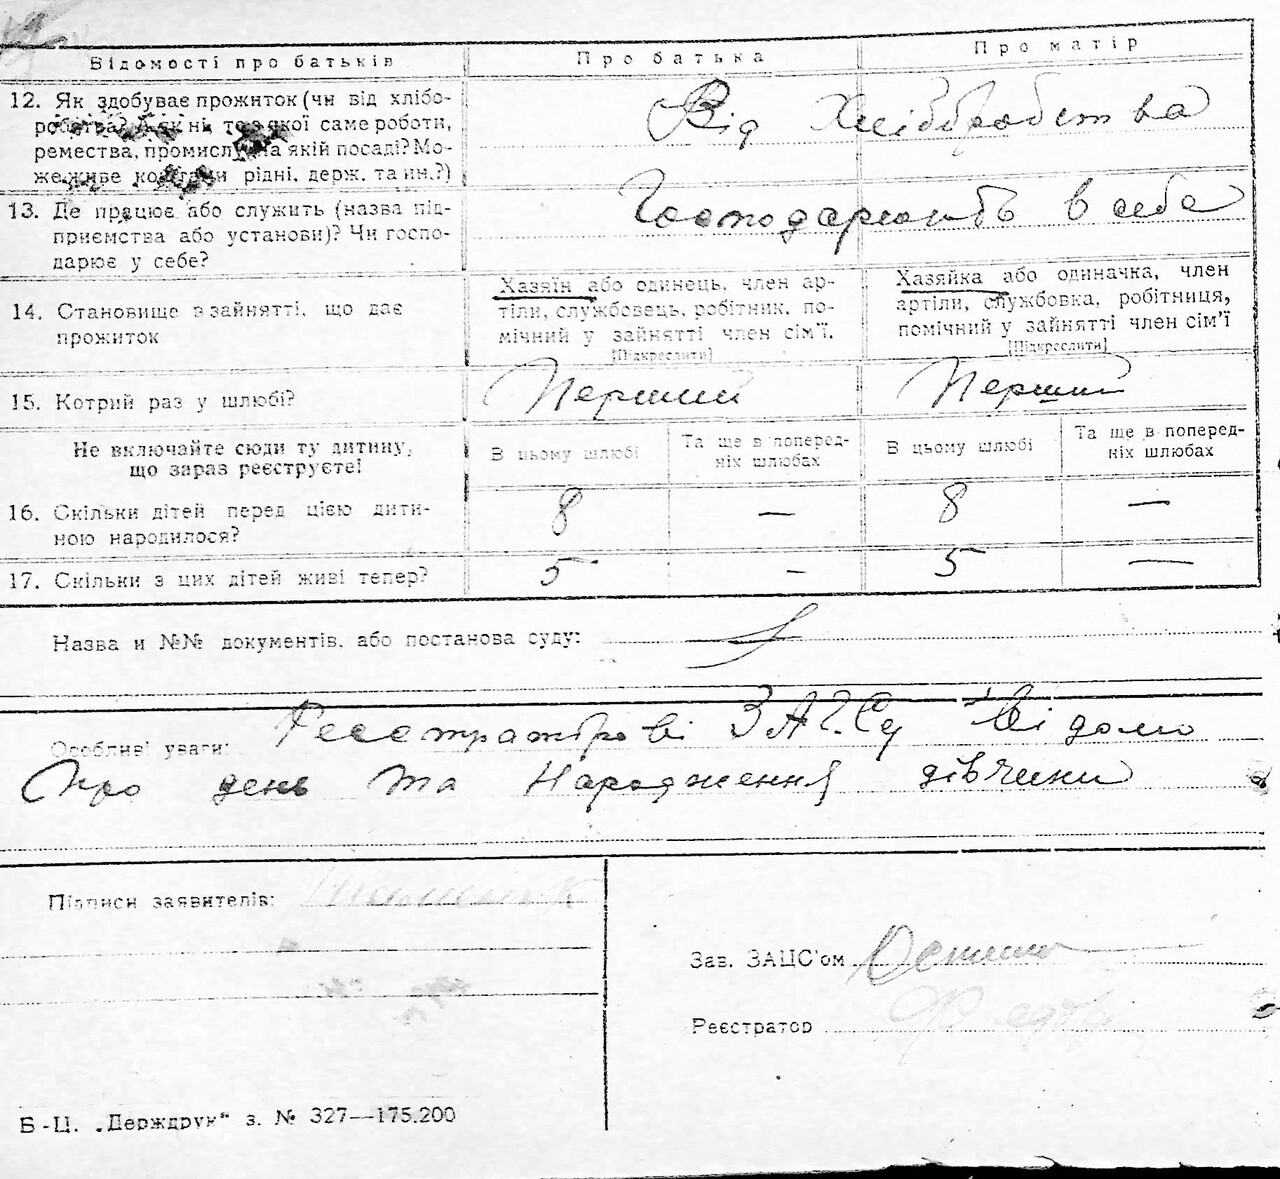 Відомості про батьків Про батька Про матір
12. Як здобуває прожиток (чи від хлібо-
робства? А як ні, то з якої саме роботи,
ремества, промислу, на якій посаді? Мо-
же живе коштами рідні, держ. та ин.?)
Від Хлібробства
13. Де працює або служить (назва під-
приємства або установи)? Чи госпо-
дарює у себе?
Господарюють в себе
14. Становище в зайнятті, що дає
прожиток
Хазяїн або одинець, член ар-
тіли, службовець, робітник, по-
мічний у зайнятті член сім'ї.
[Підкреслити]
Хазяйка або одиначка, член
артіли, службовка, робітниця,
помічний у зайнятті член сім'ї
[Підкреслити]
15. Котрий раз у шлюбі? Перший Перший
Не включайте сюди ту дитину,
що зараз реєструєте!
В цьому шлюбі
Та ще в поперед-
ніх шлюбах
В цьому шлюбі
Та ще в поперед-
ніх шлюбах
16. Скільки дітей перед цією дити-
ною народилося?
8 — 8 —
17. Скільки з цих дітей живі тепер? 5 — 5 —
Назва и №№ документів. або постанова суду:
Особливі уваги: Реєстраторові ЗАГСу Відомо
Про день та Народження дівчини
Підписи заявителів:
Зав. ЗАЦС'ом
Реєстратор
Б-Ц. „Держдрук" з. № 327—175.200